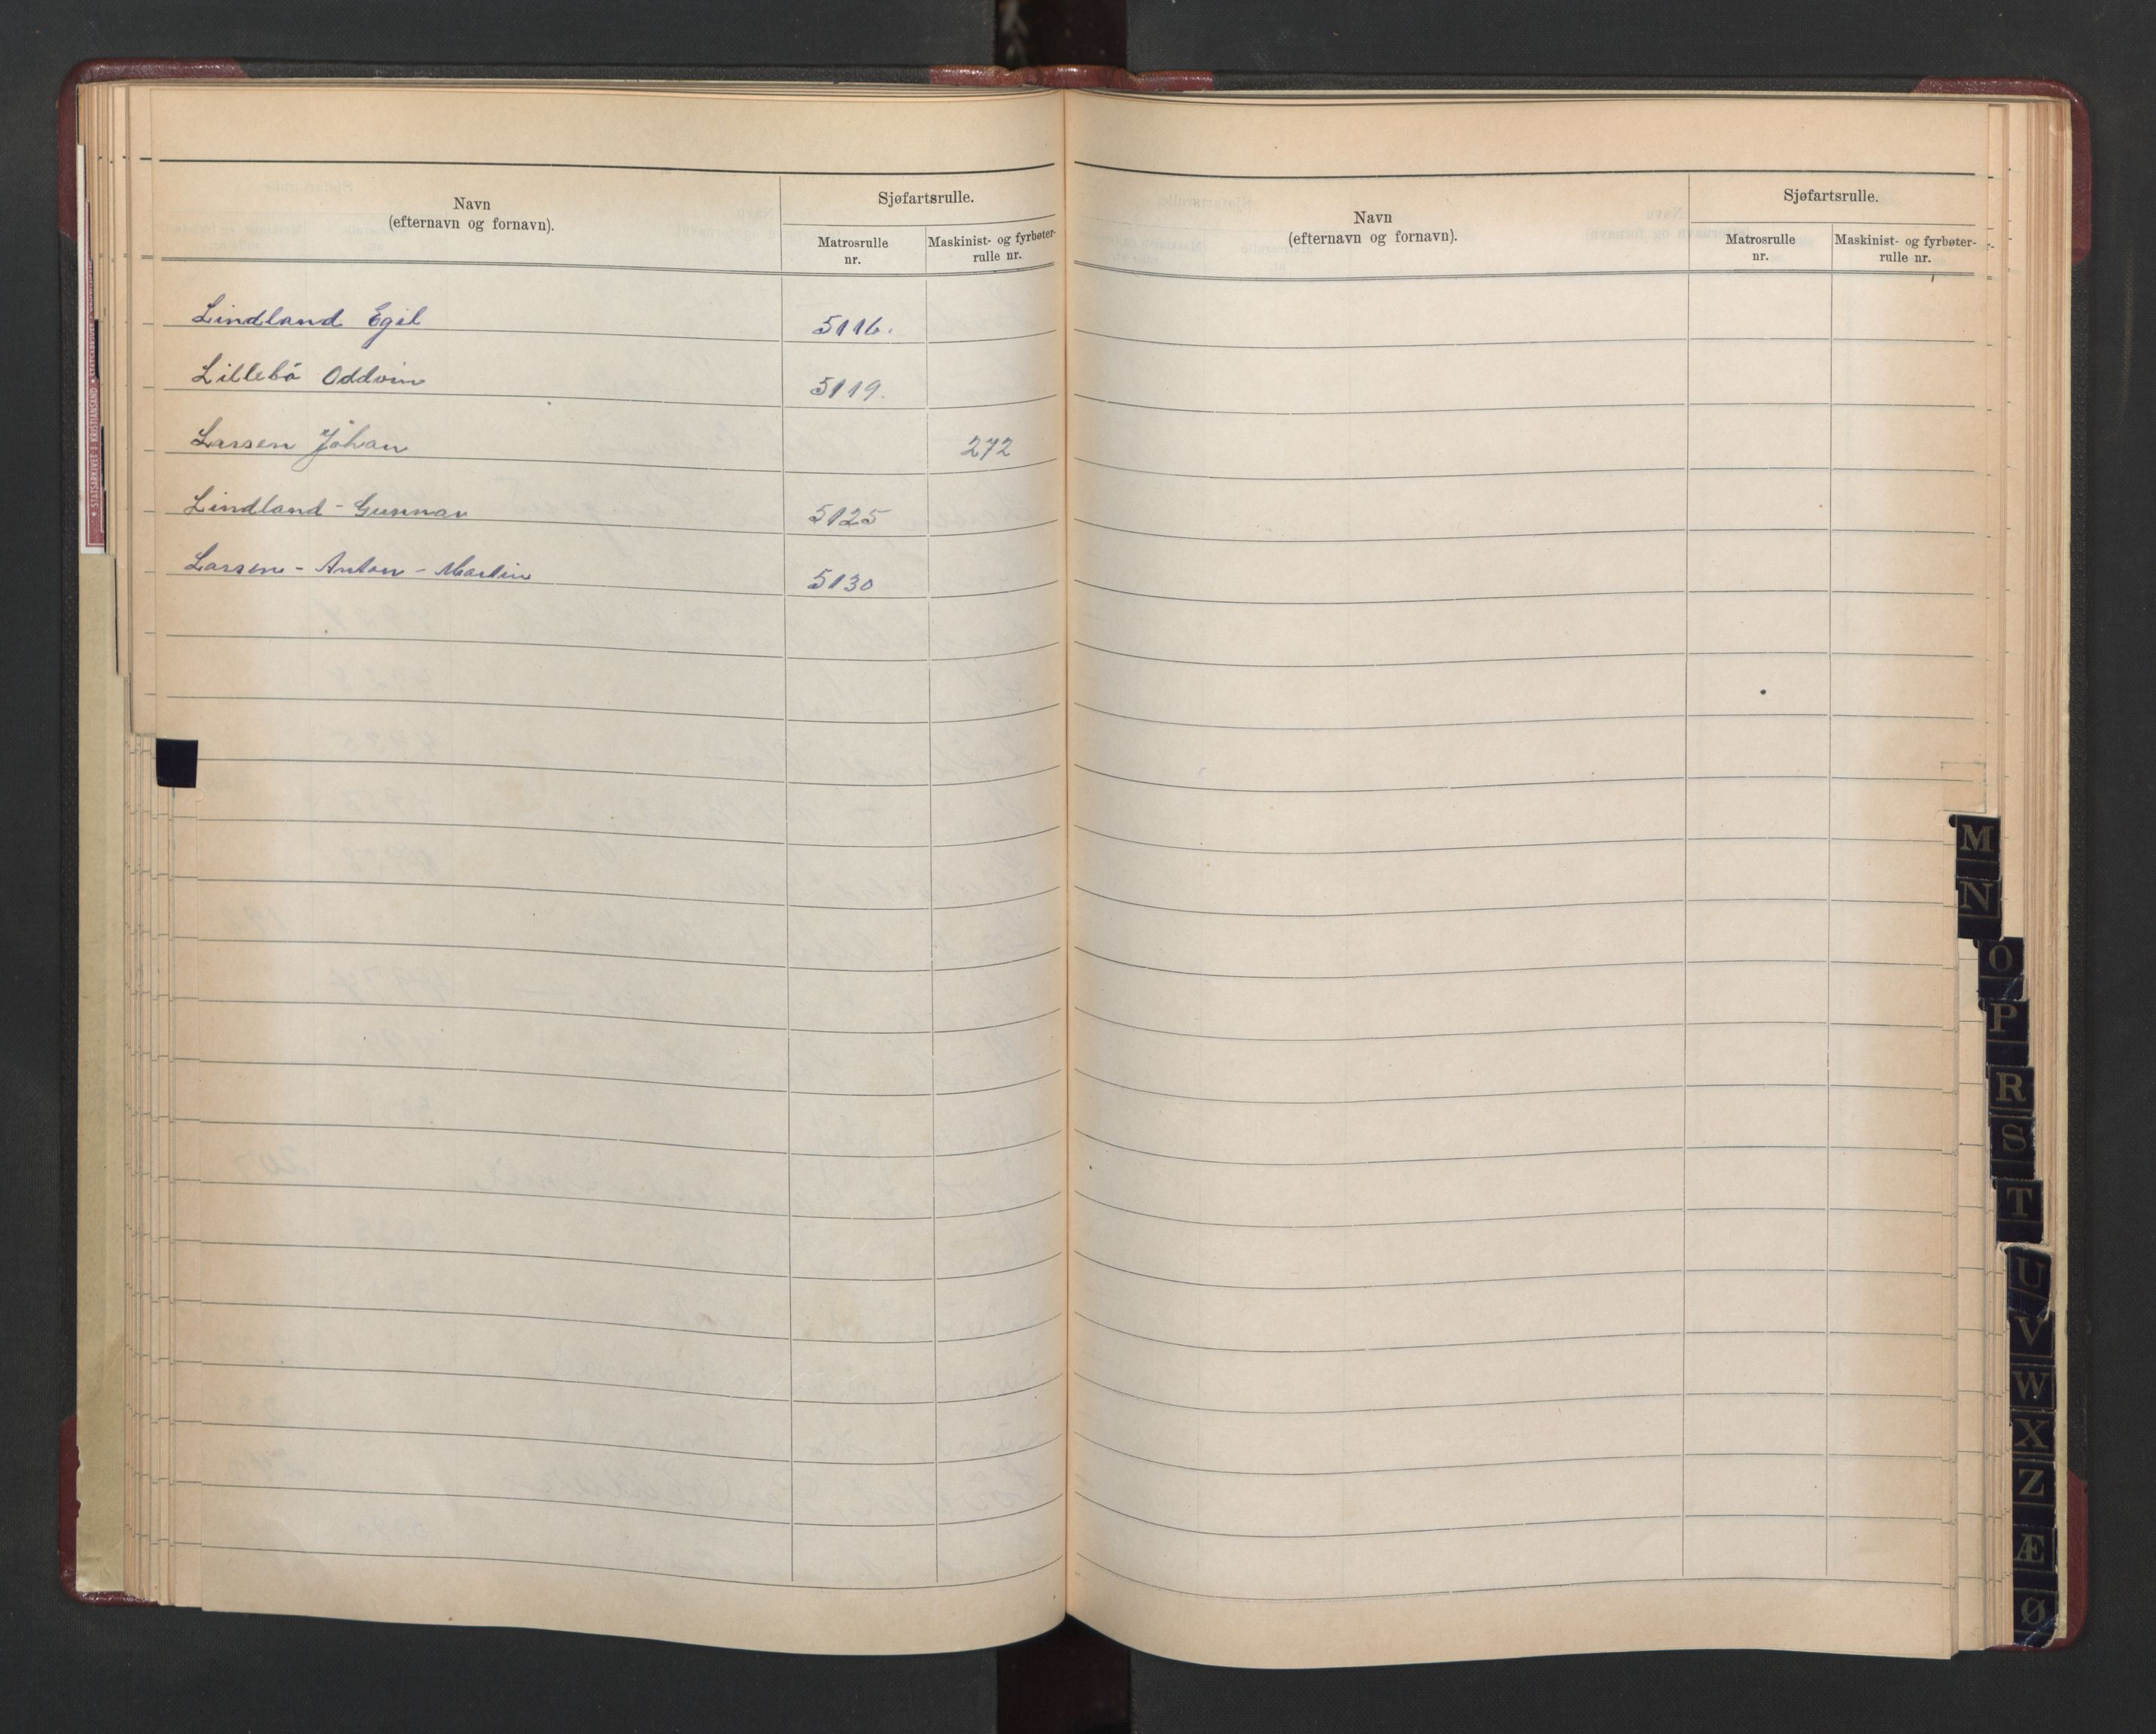 Navn
(efternavn og fornavn).
Sjøfartsrulle.
Matrosrulle
nr.
Maskinist- og fyrbøter-
rulle nr.
Lindland Egil 5116.
Lillebö Oddvin 5119.
Larsen Johan 272
Lindland - Gunnar 5125
Larsen - Anton - Martin 5130
Navn
(efternavn og fornavn).
Sjøfartsrulle.
Matrosrulle
nr.
Maskinist- og fyrbøter-
rulle nr.
STATSARKIVET I KRISTIANSAND
M
N
O
P
R
S
T
U
V
W
X
Z
Æ
Ø